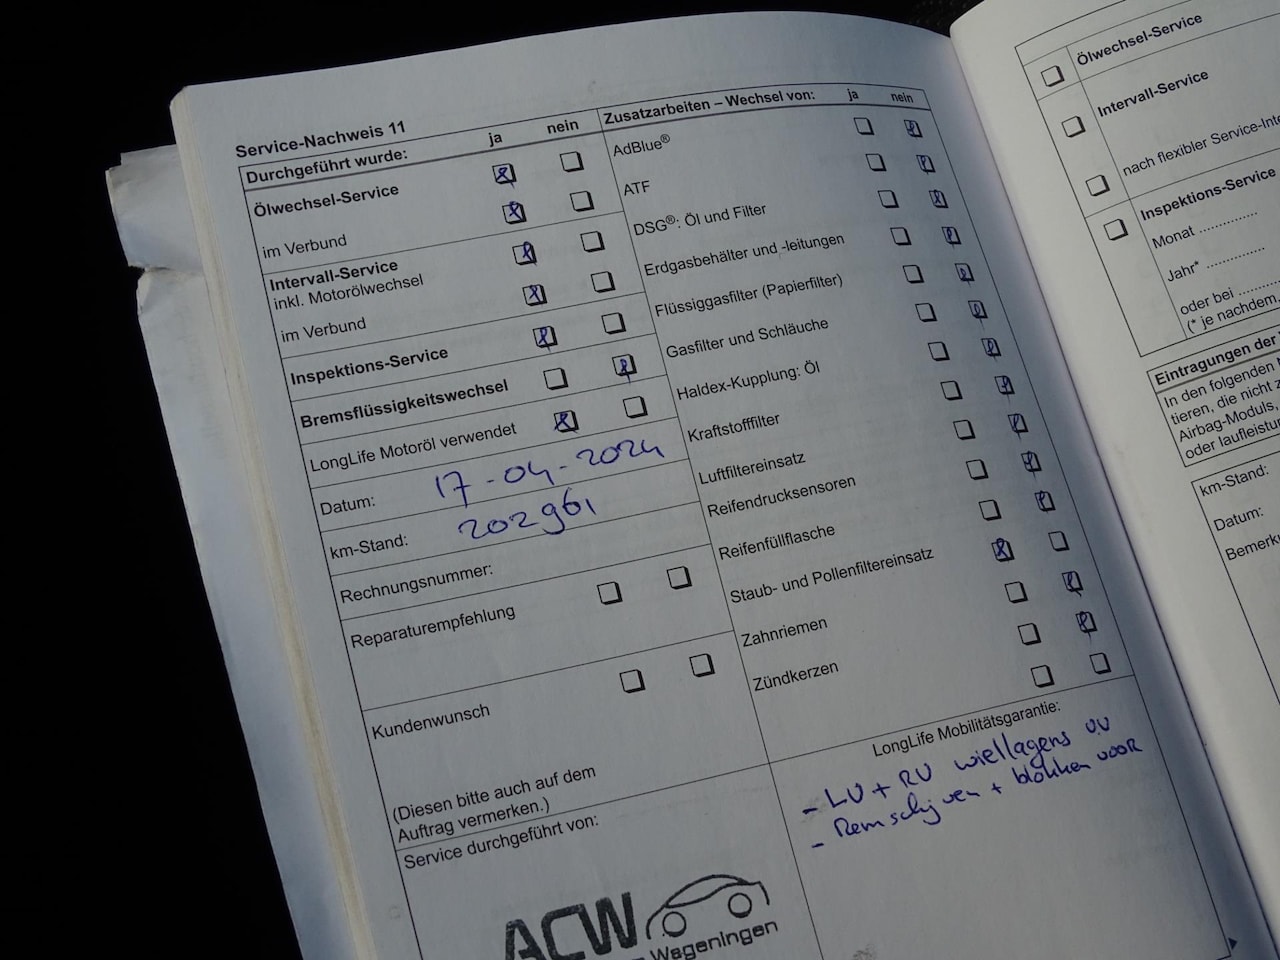 Service-Nachweis 11
Durchgeführt wurde: ja nein
Ölwechsel-Service
im Verbund
Intervall-Service
inkl. Motorölwechsel
im Verbund
Inspektions-Service
Bremsflüssigkeitswechsel
LongLife Motoröl verwendet
Datum: 17-04-2024
km-Stand: 202961
Rechnungsnummer:
Reparaturempfehlung
Kundenwunsch
(Diesen bitte auch auf dem
Auftrag vermerken.)
Service durchgeführt von:
ACW
Wageningen
Zusatzarbeiten – Wechsel von: ja nein
AdBlue®
ATF
DSG®: Öl und Filter
Erdgasbehälter und -leitungen
Flüssiggasfilter (Papierfilter)
Gasfilter und Schläuche
Haldex-Kupplung: Öl
Kraftstofffilter
Luftfiltereinsatz
Reifendrucksensoren
Reifenfüllflasche
Staub- und Pollenfiltereinsatz
Zahnriemen
Zündkerzen
LongLife Mobilitätsgarantie:
- LV + RV wiellagens VV
- Remschijven + blokken voor
Ölwechsel-Service
Intervall-Service
nach flexibler Service-Inte
Inspektions-Service
Monat .............
Jahr* .............
oder bei .............
(* je nachdem,
Eintragungen der
In den folgenden
tieren, die nicht z
Airbag-Moduls,
oder laufleistun
km-Stand:
Datum:
Bemerku